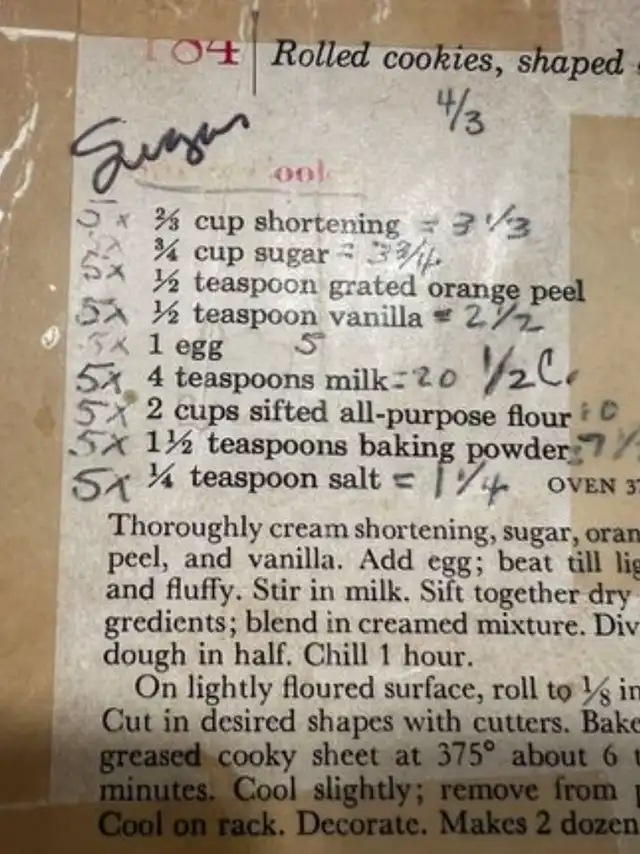 184 Rolled cookies, shaped
4/3
Sugar
5 x ⅔ cup shortening = 3 1/3
5x ¾ cup sugar = 3 3/4
5x ½ teaspoon grated orange peel
5x ½ teaspoon vanilla = 2 1/2
5x 1 egg 5
5x 4 teaspoons milk = 20 1/2 C.
5x 2 cups sifted all-purpose flour 10
5x 1½ teaspoons baking powder = 7 1/
5x ¼ teaspoon salt = 1 1/4 OVEN 37
Thoroughly cream shortening, sugar, oran
peel, and vanilla. Add egg; beat till lig
and fluffy. Stir in milk. Sift together dry
gredients; blend in creamed mixture. Div
dough in half. Chill 1 hour.
On lightly floured surface, roll to ⅛ in
Cut in desired shapes with cutters. Bake
greased cooky sheet at 375° about 6 t
minutes. Cool slightly; remove from p
Cool on rack. Decorate. Makes 2 dozen